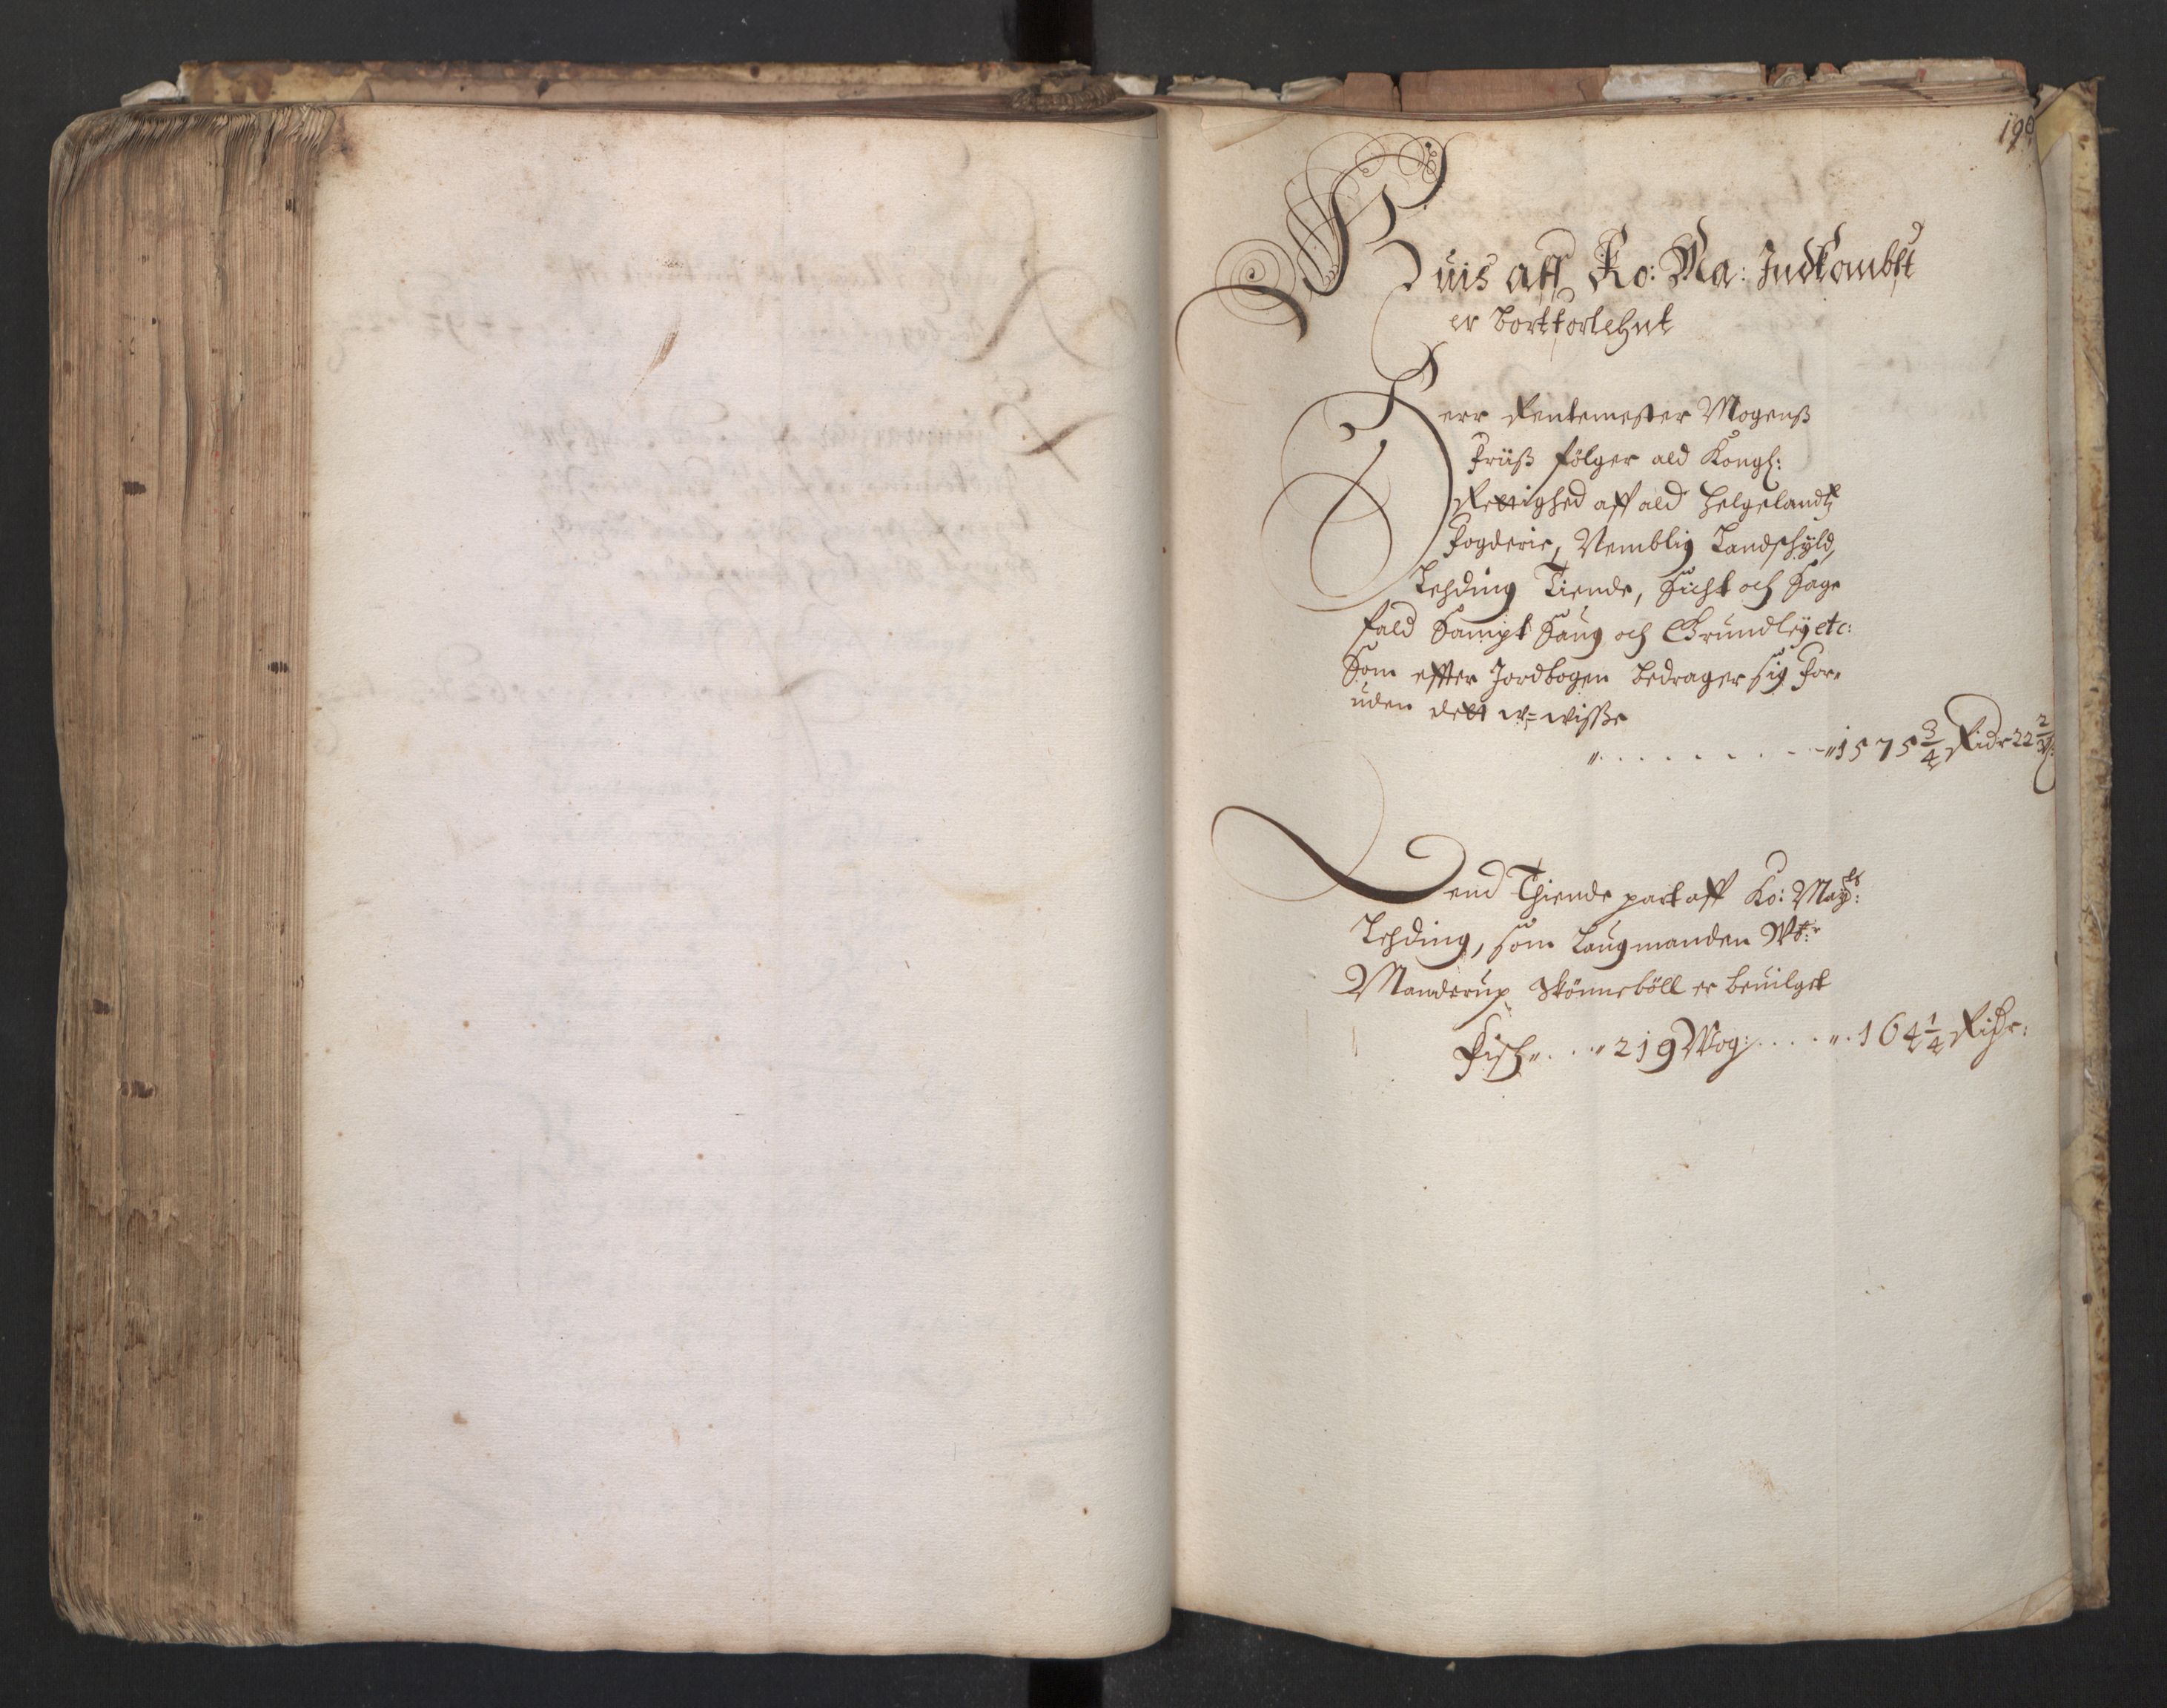 Huis aff Ko: Ma: Indkombst
er bortforlehnt
Herr Rentemester Mogenß
Friiß følger ald Kongl:
Rettighed aff ald Helgelandtz
Fogderie, Nemblig Landschyld,
Lehding Tiende, Sicht och Sage
fald Sampt Saug och Grundleÿ etc:
Som effter Jordbogen bedrager sig For¬
uden dett w=wisse
1575 3/4 Rider 22 2/
Dend Thiende part aff Ko: Maÿts:
Lehding, som Laugmanden
Manderup Skönneböll er beuilget
Fisch .. 219 Wog: .... 164 1/4 Rider: